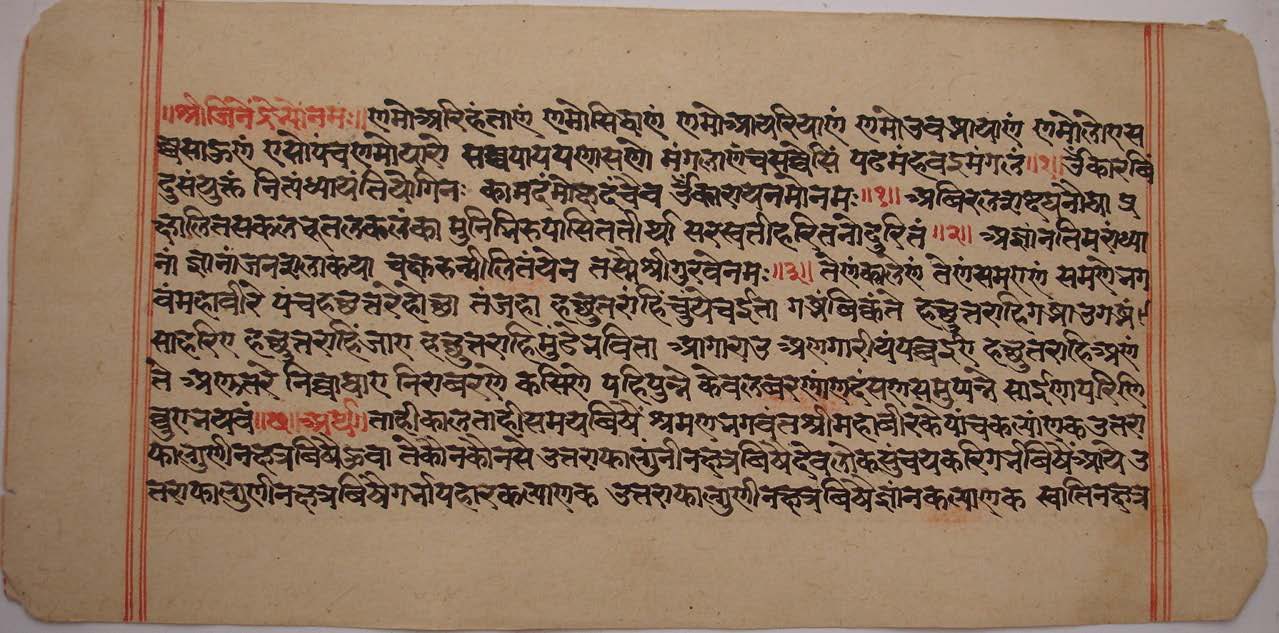 ॥श्रीजिनेंद्रेभ्योनमः॥ णमोअरिहंताणं णमोसिद्धाणं णमोआयरियाणं णमोउवझायाणं णमोलोएस
व्वेसाऊणं एसोपंचणमोयारो सव्वपावपणासणो मंगलाणंचसव्वेसिं पढमंहवइमंगलं॥१॥ ॐकारबिं
दुसंयुक्तं नित्यंध्यायंतियोगिनः कामदंमोक्षदंचैव ॐकारायनमोनमः॥१॥ अविरलशब्दघनौघा प्र
क्षालितसकलभूतलकलंका मुनिभिरुपासिततीर्था सरस्वतीहरितनोदुरितं॥२॥ अज्ञानतिमरांध्या
नां ज्ञानांजनशलाकया चक्षुरुन्मीलितंयेन तस्मैश्रीगुरवेनमः॥३॥ तेणंकालेणं तेणंसमएणं समणेभग
वंमहावीरे पंचहत्थुत्तरेहोत्था तंजहा हत्थुत्तराहिंचुयेचइत्ता गझंविक्कंत हत्थुत्तराहिगझाउगझं।
साहरिए हत्थुत्तराहिंजाए हत्थुत्तराहिमुंडेभवित्ता आगाराउ अणगारीयंपव्वइए हत्थुत्तराहिअणं
ते अणुत्तरे निव्वाघाए निरावरणे कसिणे पडिपुन्ने केवलवरणांणदंसणसमुप्पन्ने साईणापरिनि
व्वुएभयवं॥७॥अर्थ॥ ताहीकालताहीसमयविषें श्रमणभगवंतश्रीमहावीरकैपांचकल्यांणक उत्तरा
फाल्गुणीनक्षत्रविषैऊवा तेकौनकौनसे उत्तराफाल्गुनीनक्षत्रविषेदेवलोकसुंचयकरिगर्भविषेंआये उ
त्तराफाल्गुणीनक्षत्रविषेगर्भापहारकल्याणक उत्तराफाल्गुणीनक्षत्रविषेज्ञांनकल्याणक स्वातिनक्षत्र